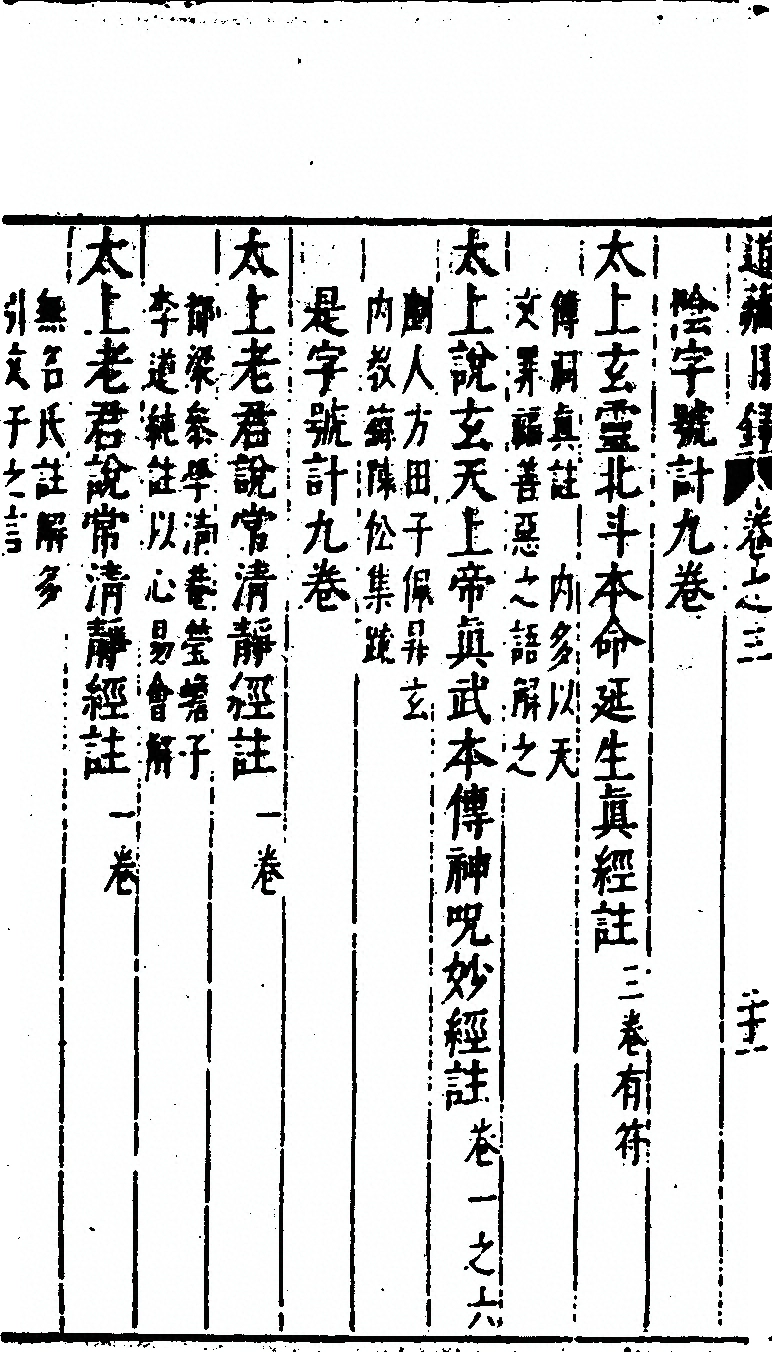 道藏目錄 卷之三 二十一
陰字號計九卷
太上玄靈北斗本命延生眞經註 三卷有符
傅洞眞註 內多以天
文罪福善惡之語解之
太上說玄天上帝眞武本傳神呪妙經註 卷一之六
劍人方田子佩昇玄
內教籙陳伀集疏
是字號計九卷
太上老君說常清靜經註 一卷
都梁參學清菴瑩蟾子
李道純註以心易會解
太上老君說常清靜經註 一卷
無名氏註解多
引文子之言